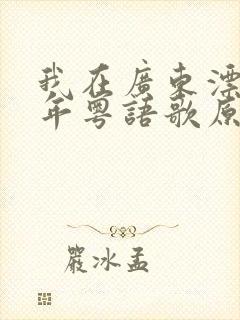 我在廣東漂
年粵語歌原
嚴冰孟